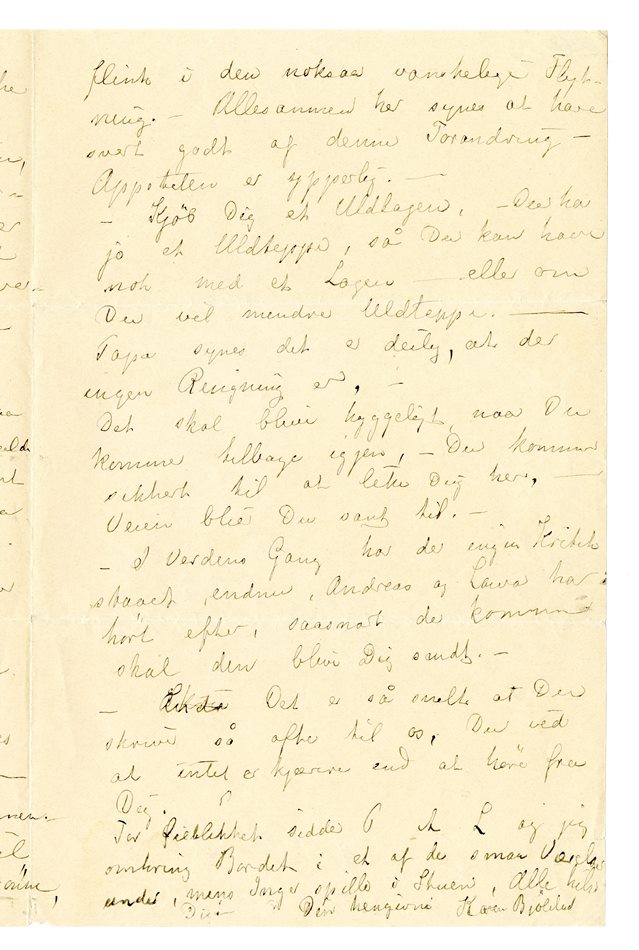 flink i den noksaa vanskelige Flyt-
ning. – Allesammen her synes at have
svært godt af denne Forandring –
Appetiten er ypperlig. –
– Kjøb Dig et Uldlagen, – Du har
jo et Uldteppe, så Du kan have
nok med et Lagen – eller om
Du vil mindre Uldteppe. –
Papa synes det er deilig, at der
ingen Rengning er, –
Det skal blive hyggeligt naar Du
kommer tilbage igjen, – Du kommer
sikkert til at like Dig her, –
Veien blir Du sandt til. –
– I Verdens Gang har der ingen Kritik
staaet, endnu, Andreas og Lawa har
hørt efter, saasnart de kommer
skal den blive Dig sendt. –
– Det er så snilt at Du
skriver så ofte til os, Du ved
at intet er kjærere end at høre fra
Dig.
For Øieblikket sidder P A L og jeg
omkring Bordet i et af de smaa
mens Inger spiller i Stuen, Alle hilser
Din hengivne Karen Bjølstad